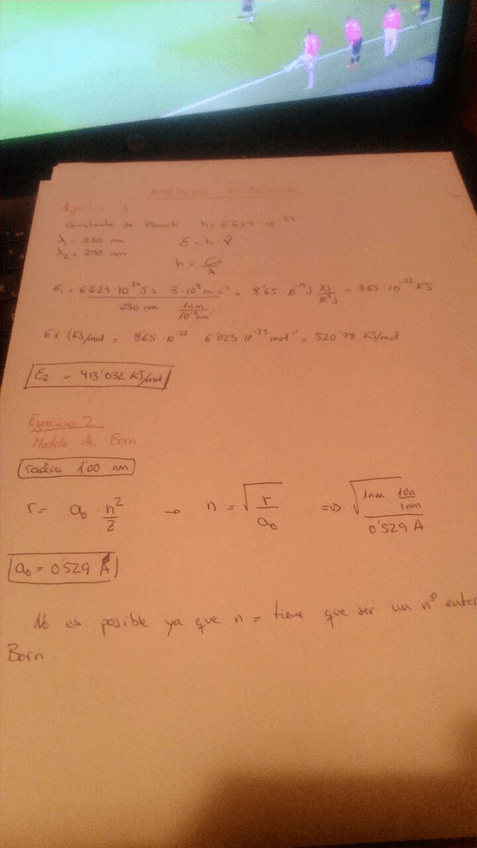 Ejercicio 1
Constante de Planck h = 6'629 · 10⁻³⁴
λ = 230 nm E = h ·
λ₂ = 290 nm
E₁ = 6'629 · 10⁻³⁴ J s · 3 · 10⁸ m s⁻¹ / 230 nm 1nm/10⁻⁹m = 8'65 · 10⁻¹⁹ J KJ/10³J = 8'65 · 10⁻²² KJ
E₁ (KJ/mol = 8'65 · 10⁻²² 6'023 · 10⁻²³ mol⁻¹ = 520'78 KJ/mol
E₂ = 413'032 KJ/mol
Ejercicio 2
Modelo de Born
radio 1'00 nm
r = a₀ · n²/2 → n = √(r/a₀) => √(1nm 10A/1nm / 0'529 A)
a₀ = 0'529 Å
No es posible ya que n = tiene que ser un nº enter
Born.